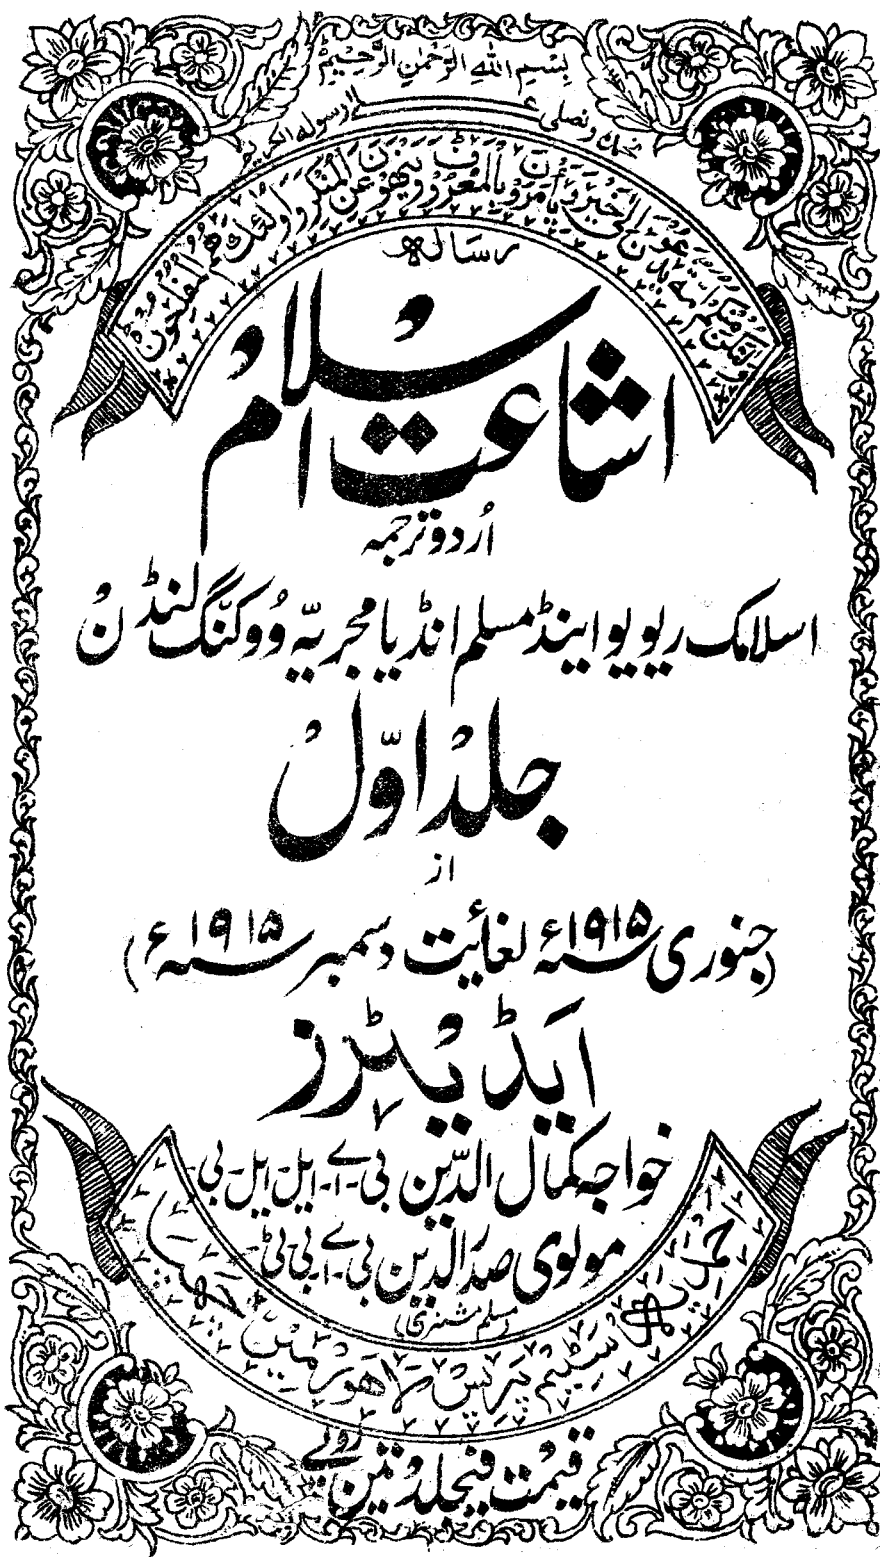 بسم اللہ الرحمن الرحیم
نحمدہ و نصلی علیٰ رسولہ الکریم
ولتکن منکم امۃ یدعون الی الخیر ویأمرون بالمعروف وینھون عن المنکر واولئک ھم المفلحون
رسالہ
اشاعت اسلام
اُردو ترجمہ
اسلامک ریویو اینڈ مسلم انڈیا مجریّہ ووکنگ لنڈن
جلد اوّل
از
(جنوری ۱۹۱۵ء لغائت دسمبر ۱۹۱۵ء)
ایڈیٹرز
خواجہ کمال الدّین بی-اے-ایل-ایل-بی
مولوی صدر الدین بی-اے بی-ٹی
(مسلم مشنری)
سٹیم پریس لاھور میں
قیمت فیجلد تین روپے